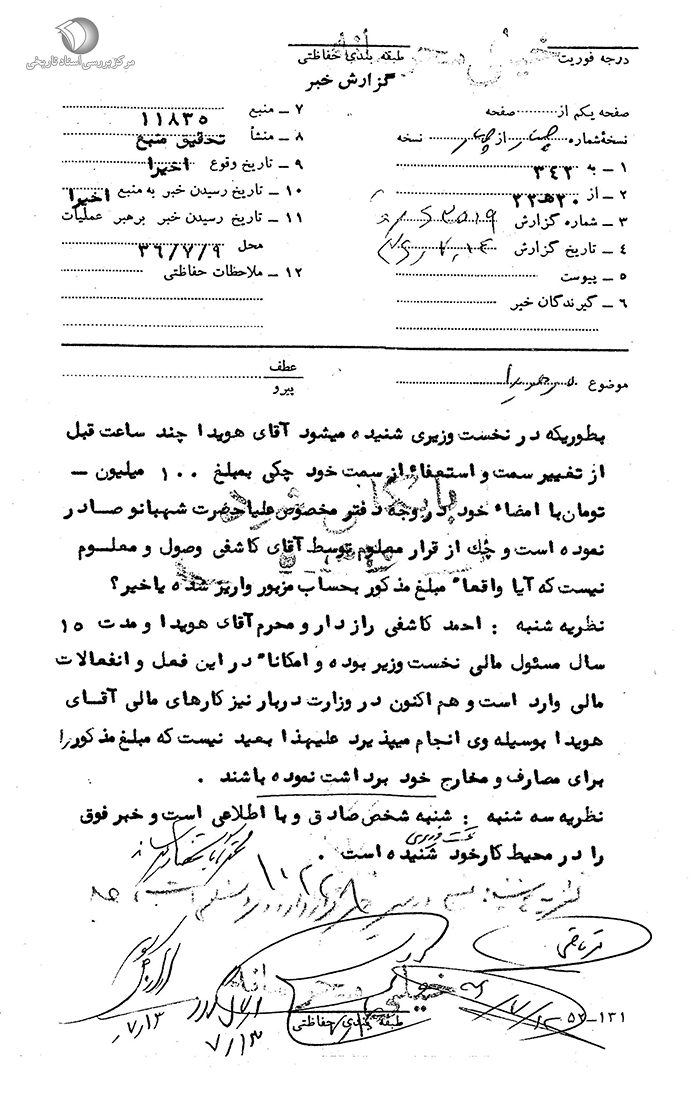 مرکز بررسی اسناد تاریخی
خیلی محرمانه
درجه فوریت
طبقه بندی حفاظتی
گزارش خبر
صفحه یکم از صفحه
نسخه شماره چهار از چهار نسخه
۱ ـ به ۳۴۲
۲ ـ از ۲۰هـ۲۲
۳ ـ شماره گزارش
۴ ـ تاریخ گزارش
۵ ـ پیوست
۶ ـ گیرندگان خبر
۷ ـ منبع ۱۱۸۳۵
۸ ـ منشأ تحقیق منبع
۹ ـ تاریخ وقوع اخیرا
۱۰ ـ تاریخ رسیدن خبر به منبع اخیرا
۱۱ ـ تاریخ رسیدن خبر برهبر عملیات
محل ۳۶/۷/۹
۱۲ ـ ملاحظات حفاظتی
موضوع
عطف
پیرو
بطوریکه در نخست وزیری شنیده میشود آقای هویدا چند ساعت قبل
از تغییر سمت و استعفاء از سمت خود چکی بمبلغ ۱۰۰ میلیون ـ
تومان با امضاء خود در وجه دفتر مخصوص علیاحضرت شهبانو صادر
نموده است و چک از قرار معلوم توسط آقای کاشفی وصول و معلوم
نیست که آیا واقعاً مبلغ مذکور بحساب مزبور واریز شده یا خیر؟
نظریه شنبه : احمد کاشفی راز دار و محرم آقای هویدا و مدت ۱۵
سال مسئول مالی نخست وزیر بوده و امکاناً در این فعل و انفعالات
مالی وارد است و هم اکنون در وزارت دربار نیز کارهای مالی آقای
هویدا بوسیله وی انجام میپذیرد علیهذا بعید نیست که مبلغ مذکور را
برای مصارف و مخارج خود برداشت نموده باشند .
نظریه سه شنبه : شنبه شخص صادق و با اطلاعی است و خبر فوق
را در محیط کار خود شنیده است .
۱۰۲۲۸
خیلی محرمانه
طبقه بندی حفاظتی
۷/۱۳
۷/۱۳
۵۲ـ۱۳۱